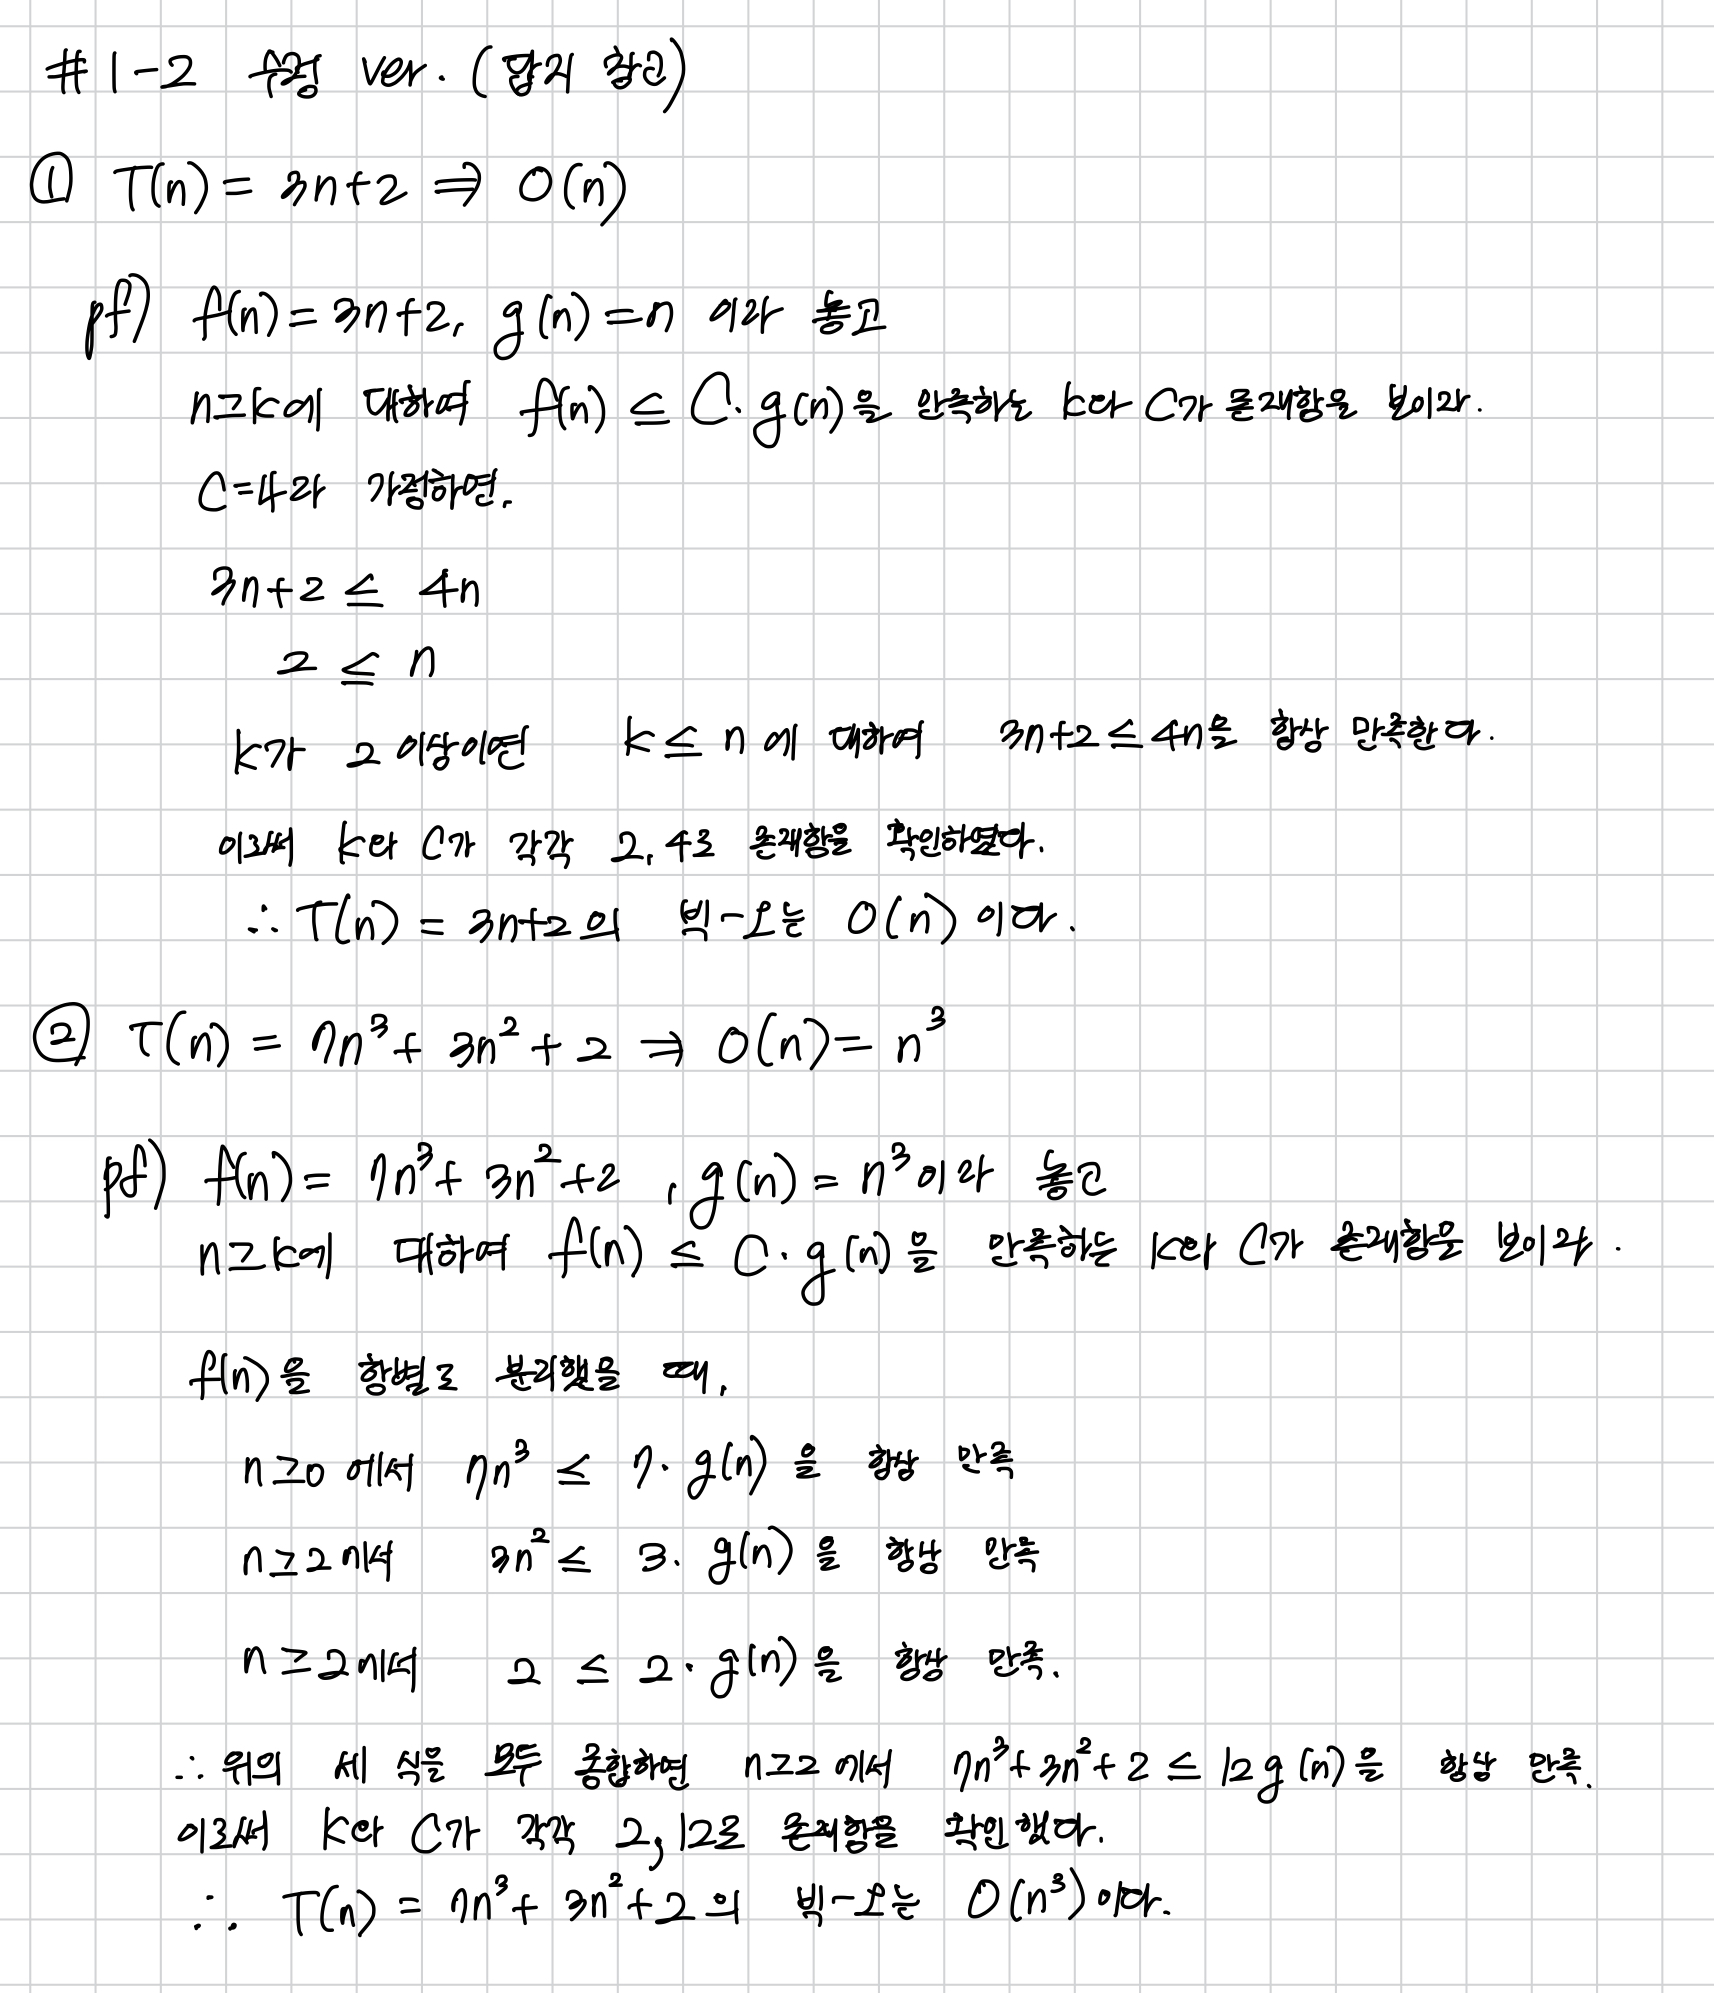 #1-2 수정 ver. (답지 참고)
① T(n) = 3n+2 ⇒ O(n)
pf) f(n) = 3n+2, g(n) = n 이라 놓고
n≥k에 대하여 f(n) ≤ C·g(n)을 만족하는 k와 C가 존재함을 보이라.
C=4라 가정하면,
3n+2 ≤ 4n
2 ≤ n
k가 2 이상이면 k ≤ n 에 대하여 3n+2 ≤ 4n을 항상 만족한다.
이로써 k와 C가 각각 2, 4로 존재함을 확인하였다.
∴ T(n) = 3n+2의 빅-오는 O(n) 이다.
② T(n) = 7n³ + 3n² + 2 ⇒ O(n) = n³
pf) f(n) = 7n³ + 3n² + 2 , g(n) = n³이라 놓고
n≥k에 대하여 f(n) ≤ C·g(n)을 만족하는 k와 C가 존재함을 보이라.
f(n)을 항별로 분리했을 때,
n≥0 에서 7n³ ≤ 7·g(n)을 항상 만족
n≥2에서 3n² ≤ 3·g(n)을 항상 만족
n≥2에서 2 ≤ 2·g(n)을 항상 만족.
∴ 위의 세 식을 모두 종합하면 n≥2 에서 7n³+3n²+2 ≤ 12g(n)을 항상 만족.
이로써 k와 C가 각각 2, 12로 존재함을 확인했다.
∴ T(n) = 7n³ + 3n² + 2의 빅-오는 O(n³)이다.